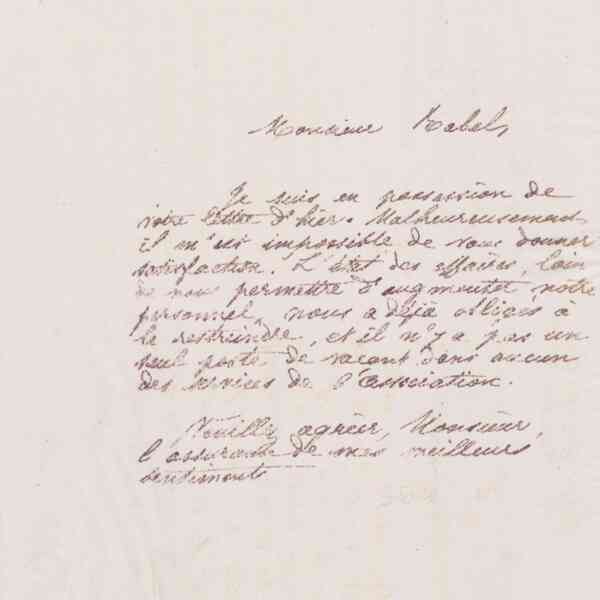 Monsieur Rabel,
Je suis en possession de
votre lettre d'hier. Malheureusement
il m'est impossible de vous donner
satisfaction. L'état des affaires, loin
de nous permettre d'augmenter notre
personnel, nous a déjà obligés à
le restreindre, et il n'y a pas un
seul poste de vacant dans aucun
des services de l'Association.
Veuillez agréer, Monsieur,
l'assurance de mes meilleurs
sentiments